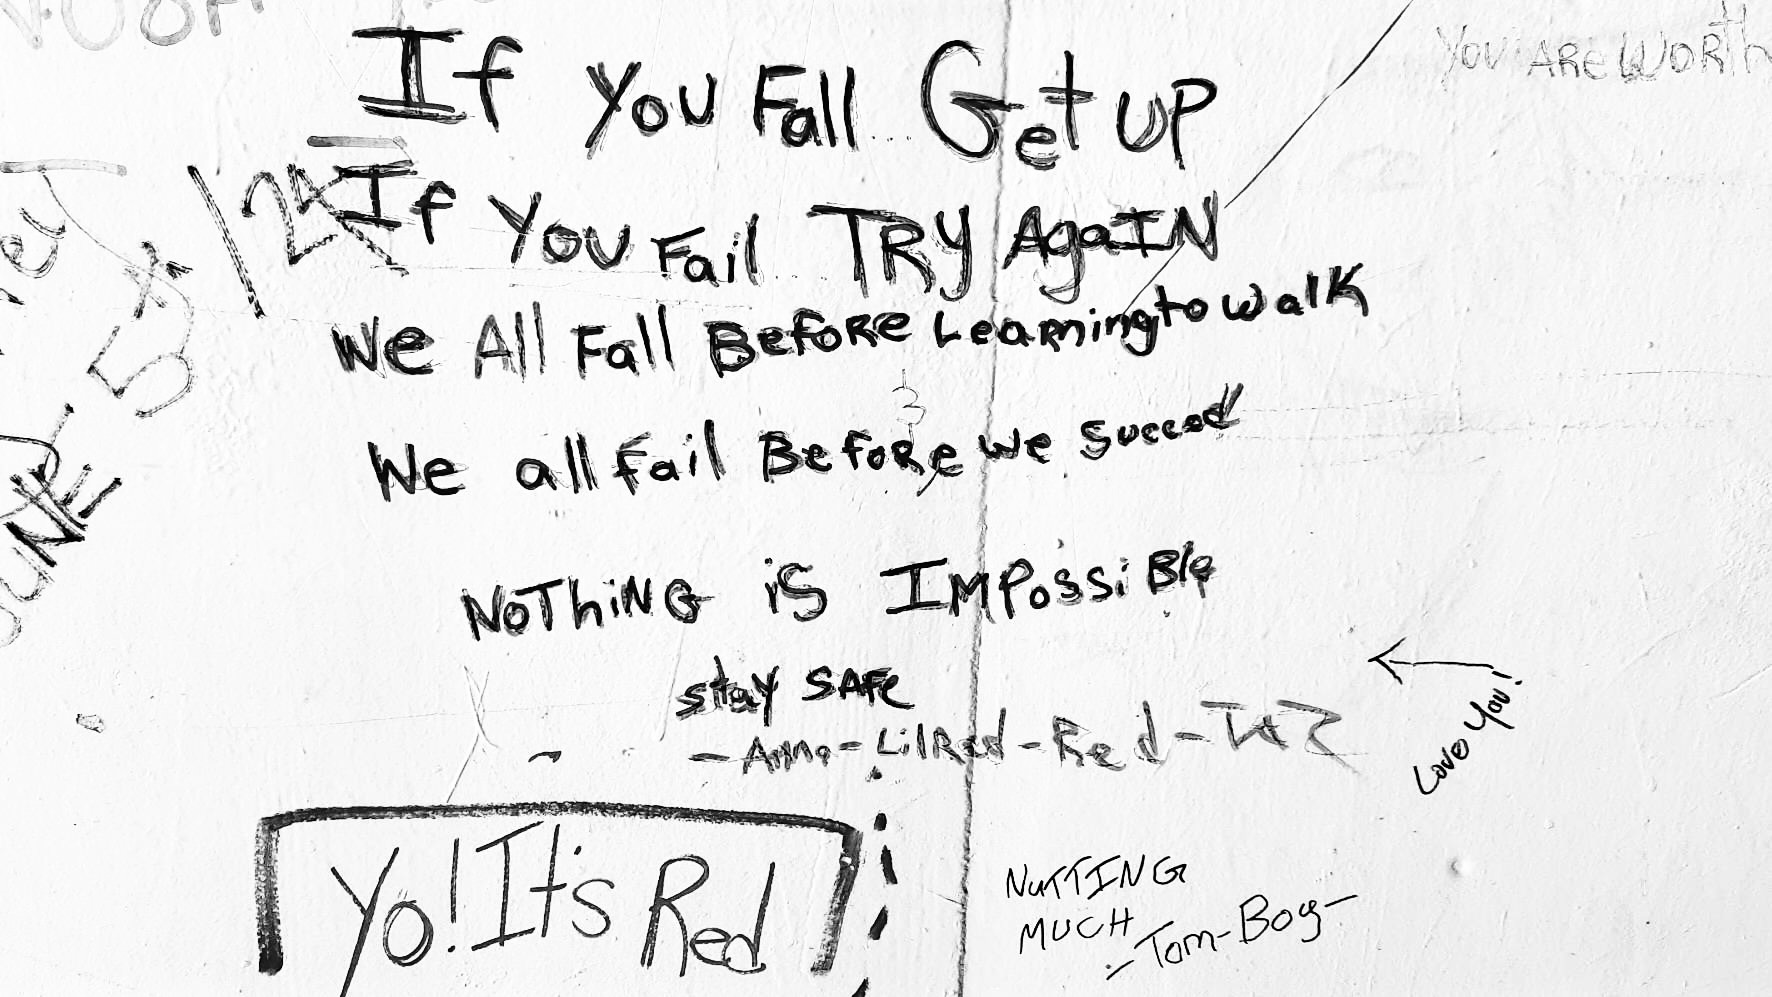 If You Fall... Get UP
If You Fail... TRY AgaIN
We All Fall Before Learning to walk
We all fail Before we Succed
NoThiNG iS IMPossiBle
Stay SAFe
LilRed-Red
Yo! It's Red
You ARe WORTh
Love You!
NuTTING
MUCH
-Tom-Boy-
JUNE 5th